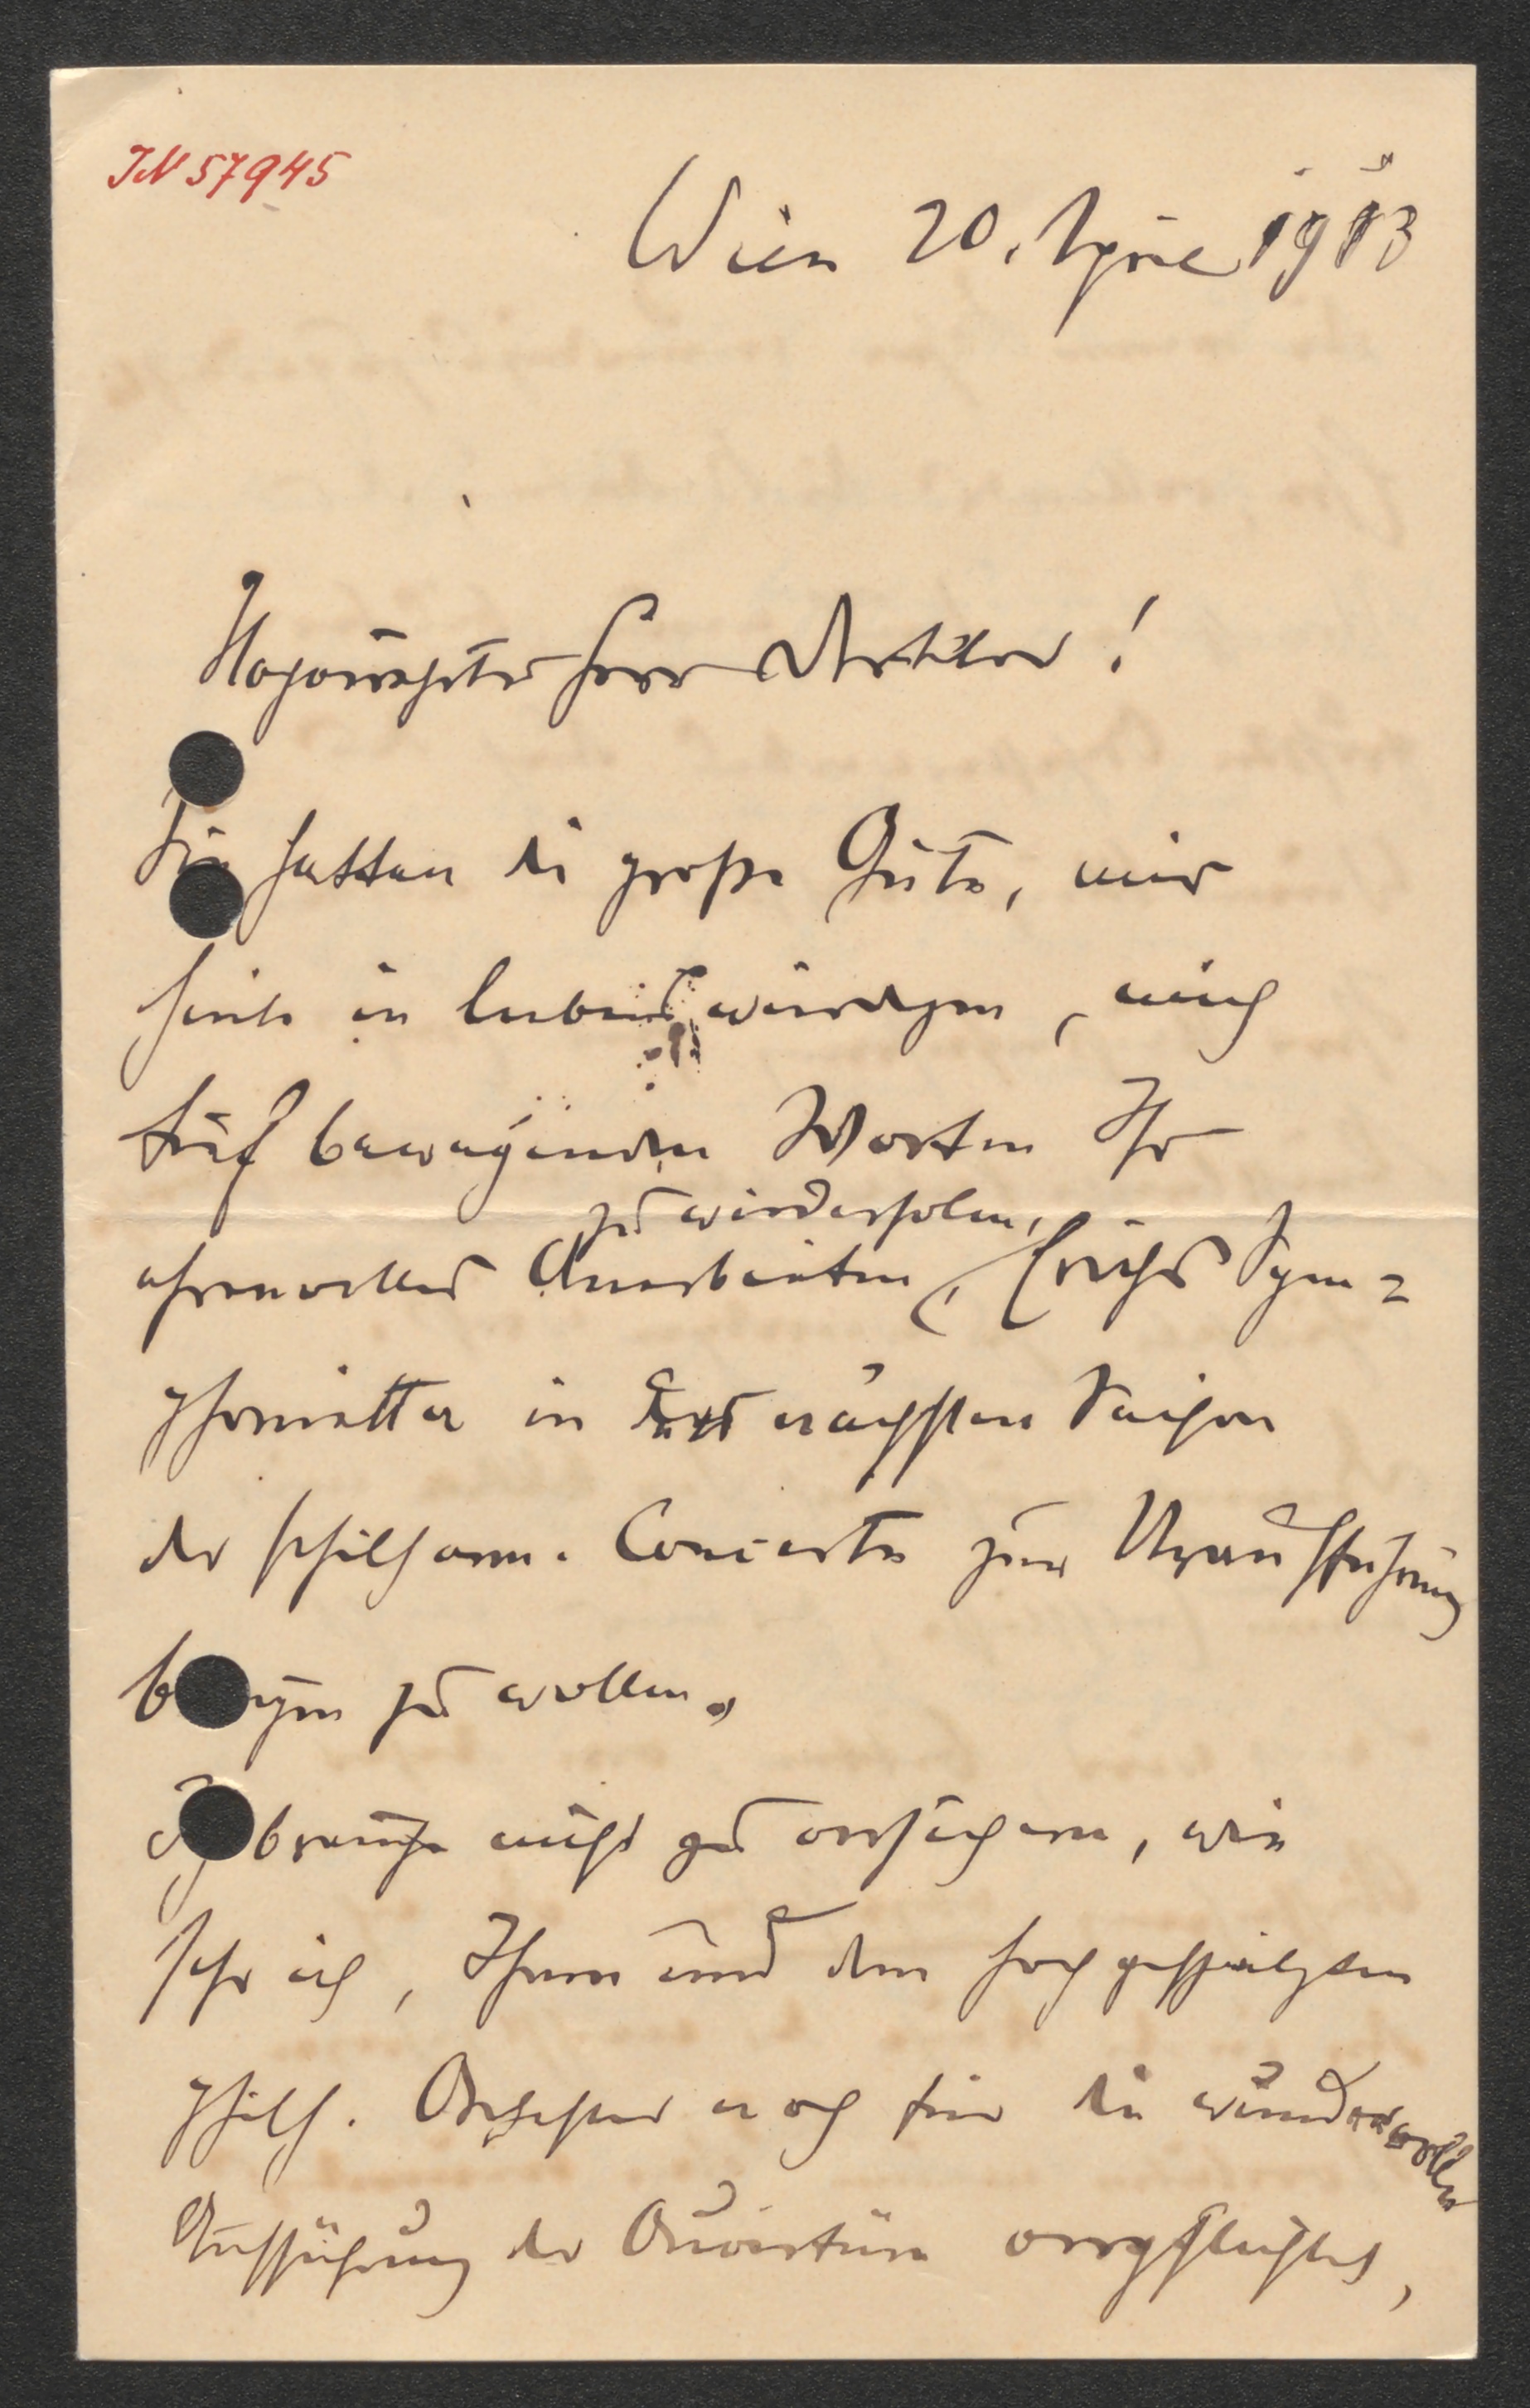 IN 57945
Wien 20. April 1913
Hochverehrter Herr Direktor!
Sie hatten die große Güte, mir
heute in liebenswürdigen, mich
tief bewegenden Worten Ihr
zu wiederholen,
ehrenvolles Anerbieten, Erichs Sym=
phonietta in der nächsten Saison
der philharm. Concerte zur Uraufführung
bringen zu wollen.
Ich brauche nicht zu versichern, wie
sehr ich, Ihnen und dem hochgeschätzten
philh. Orchester noch für die wundervolle
Aufführung der Ouvertüre verpflichtet,